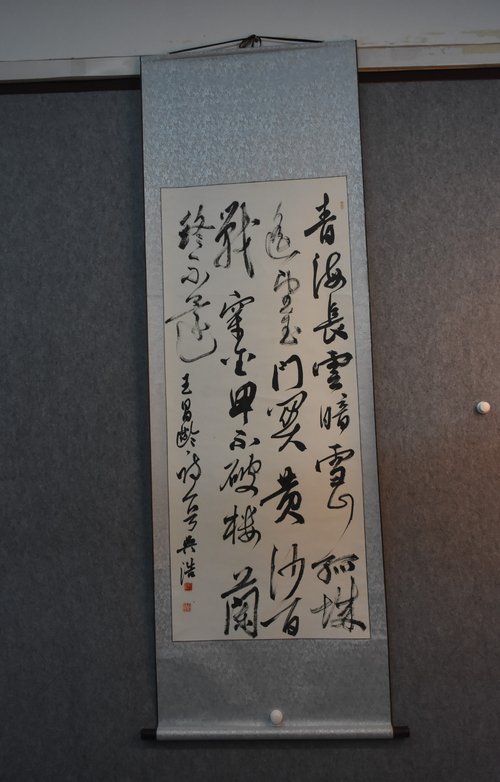 青海長雲暗雪山孤城
遙望玉門關黃沙百
戰穿金甲不破樓蘭
終不還 王昌齡詩一首 興浩